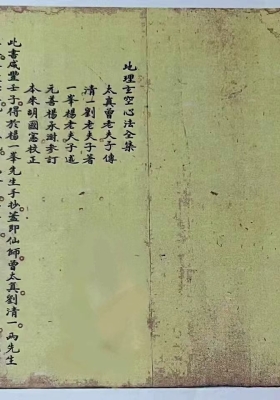 地理玄空心法全集
太真曾老夫子傳
清一劉老夫子著
一峯楊老夫子述
元善楊永澍参訂
本來明國憲校正
此書咸豐壬子得於楊一峯先生手抄蓋即仙師曾太真劉清一两先生